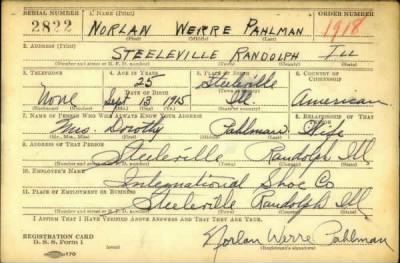 SERIAL NUMBER 1. NAME (Print) ORDER NUMBER
2822 NORLAN WERRE PAHLMAN 1918
(First) (Middle) (Last)
2. ADDRESS (Print)
STEELEVILLE RANDOLPH ILL
(Number and street or R. F. D. number) (Town) (County) (State)
3. TELEPHONE 4. AGE IN YEARS 5. PLACE OF BIRTH 6. COUNTRY OF CITIZENSHIP
25 Steeleville
DATE OF BIRTH (Town or county)
None Sept 13 1915 Ill. American
(Exchange) (Number) (Mo.) (Day) (Yr.) (State or country)
7. NAME OF PERSON WHO WILL ALWAYS KNOW YOUR ADDRESS 8. RELATIONSHIP OF THAT PERSON
Mrs. Dorothy Pahlman Wife
(Mr., Mrs., Miss) (First) (Middle) (Last)
9. ADDRESS OF THAT PERSON
Steeleville Randolph Ill
(Number and street or R. F. D. number) (Town) (County) (State)
10. EMPLOYER'S NAME
International Shoe Co
11. PLACE OF EMPLOYMENT OR BUSINESS
Steeleville Randolph Ill
(Number and street or R. F. D. number) (Town) (County) (State)
I AFFIRM THAT I HAVE VERIFIED ABOVE ANSWERS AND THAT THEY ARE TRUE.
REGISTRATION CARD
D. S. S. Form 1 Norlan Werre Pahlman
(Registrant's signature)